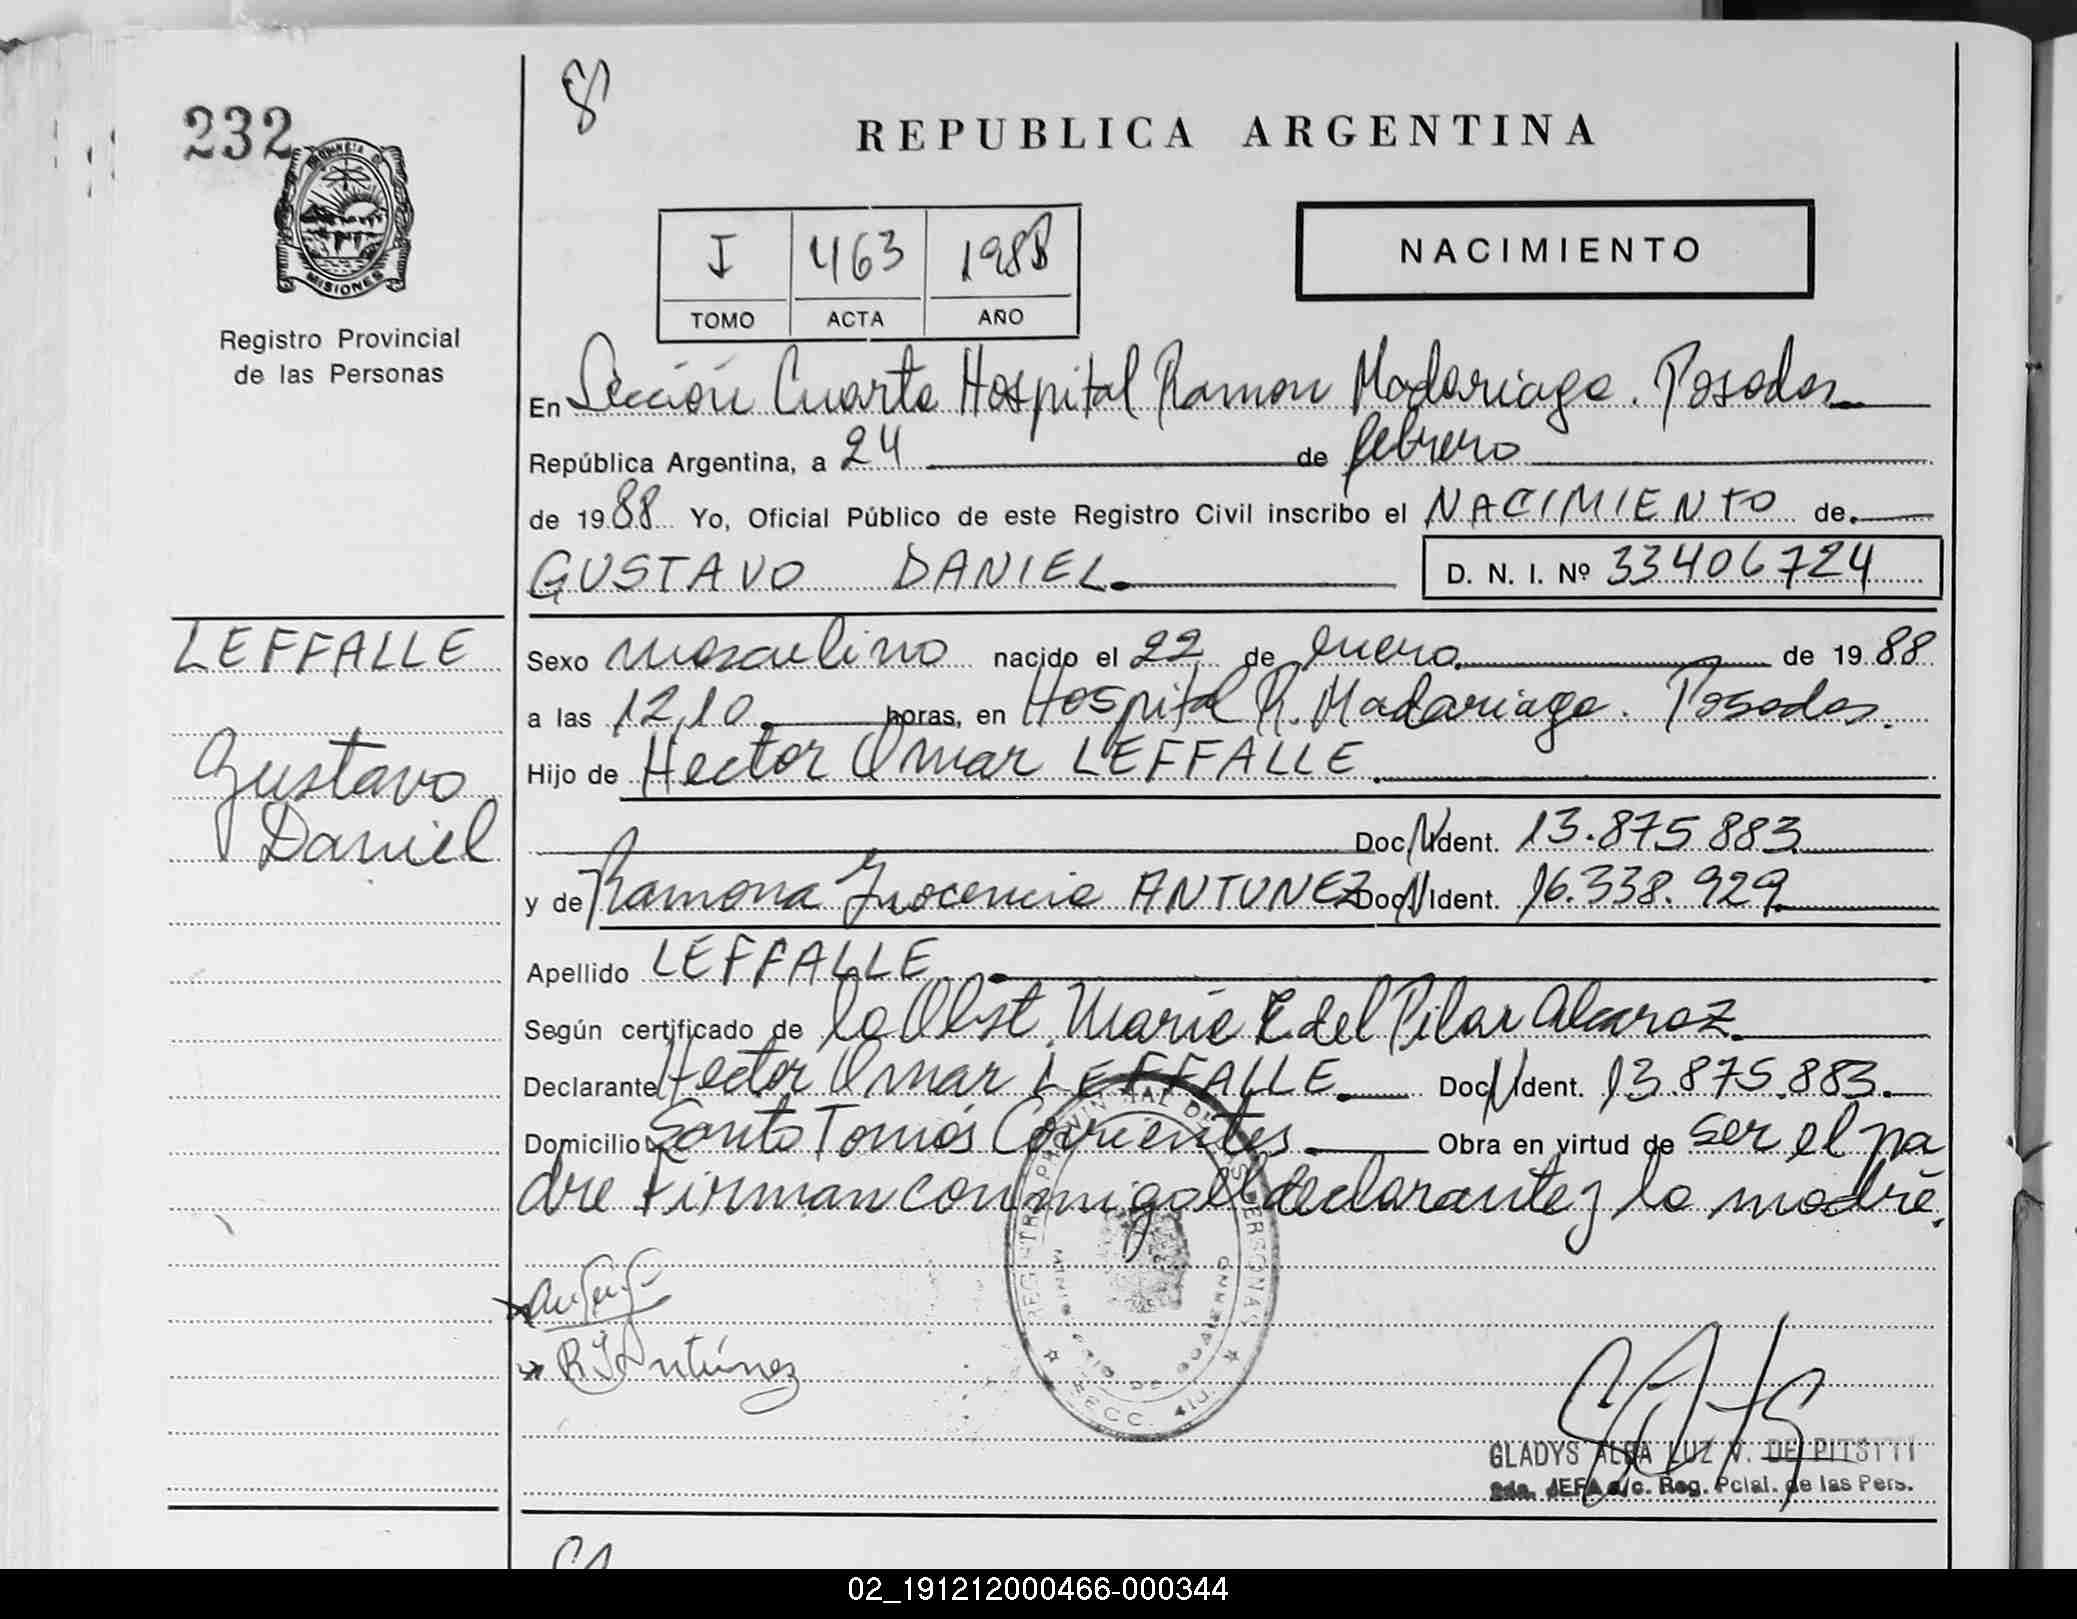 232
8
REPUBLICA ARGENTINA
PROVINCIA DE
MISIONES
Registro Provincial
de las Personas
I 463 1988
TOMO ACTA AÑO
NACIMIENTO
En Sección Cuarta Hospital Ramon Madariaga. Posadas
República Argentina, a 24 de febrero
de 1988 Yo, Oficial Público de este Registro Civil inscribo el NACIMIENTO de
GUSTAVO DANIEL
D. N. I. Nº 33406724
LEFFALLE
Gustavo
Daniel
Sexo masculino nacido el 22 de enero de 1988
a las 12,10 horas, en Hospital R. Madariaga. Posadas.
Hijo de Hector Omar LEFFALLE
Doc. N Ident. 13.875.883
y de Ramona Inocencia ANTUNEZ Doc. N Ident. 16.338.929
Apellido LEFFALLE
Según certificado de la Obst. Maria E. del Pilar Alcaraz
Declarante Hector Omar LEFFALLE Doc. N Ident. 13.875.883.
Domicilio Santo Tomás Corrientes Obra en virtud de ser el pa
dre Firman conmigo el declarante y la madre.
REGISTRO PROVINCIAL DE LAS PERSONAS
MINISTERIO DE GOBIERNO
SECC. 4
R I Antúnez
GLADYS ALBA LUZ V. DE
2da. JEFA a/c. Reg. Pcial. de las Pers.
02_191212000466-000344